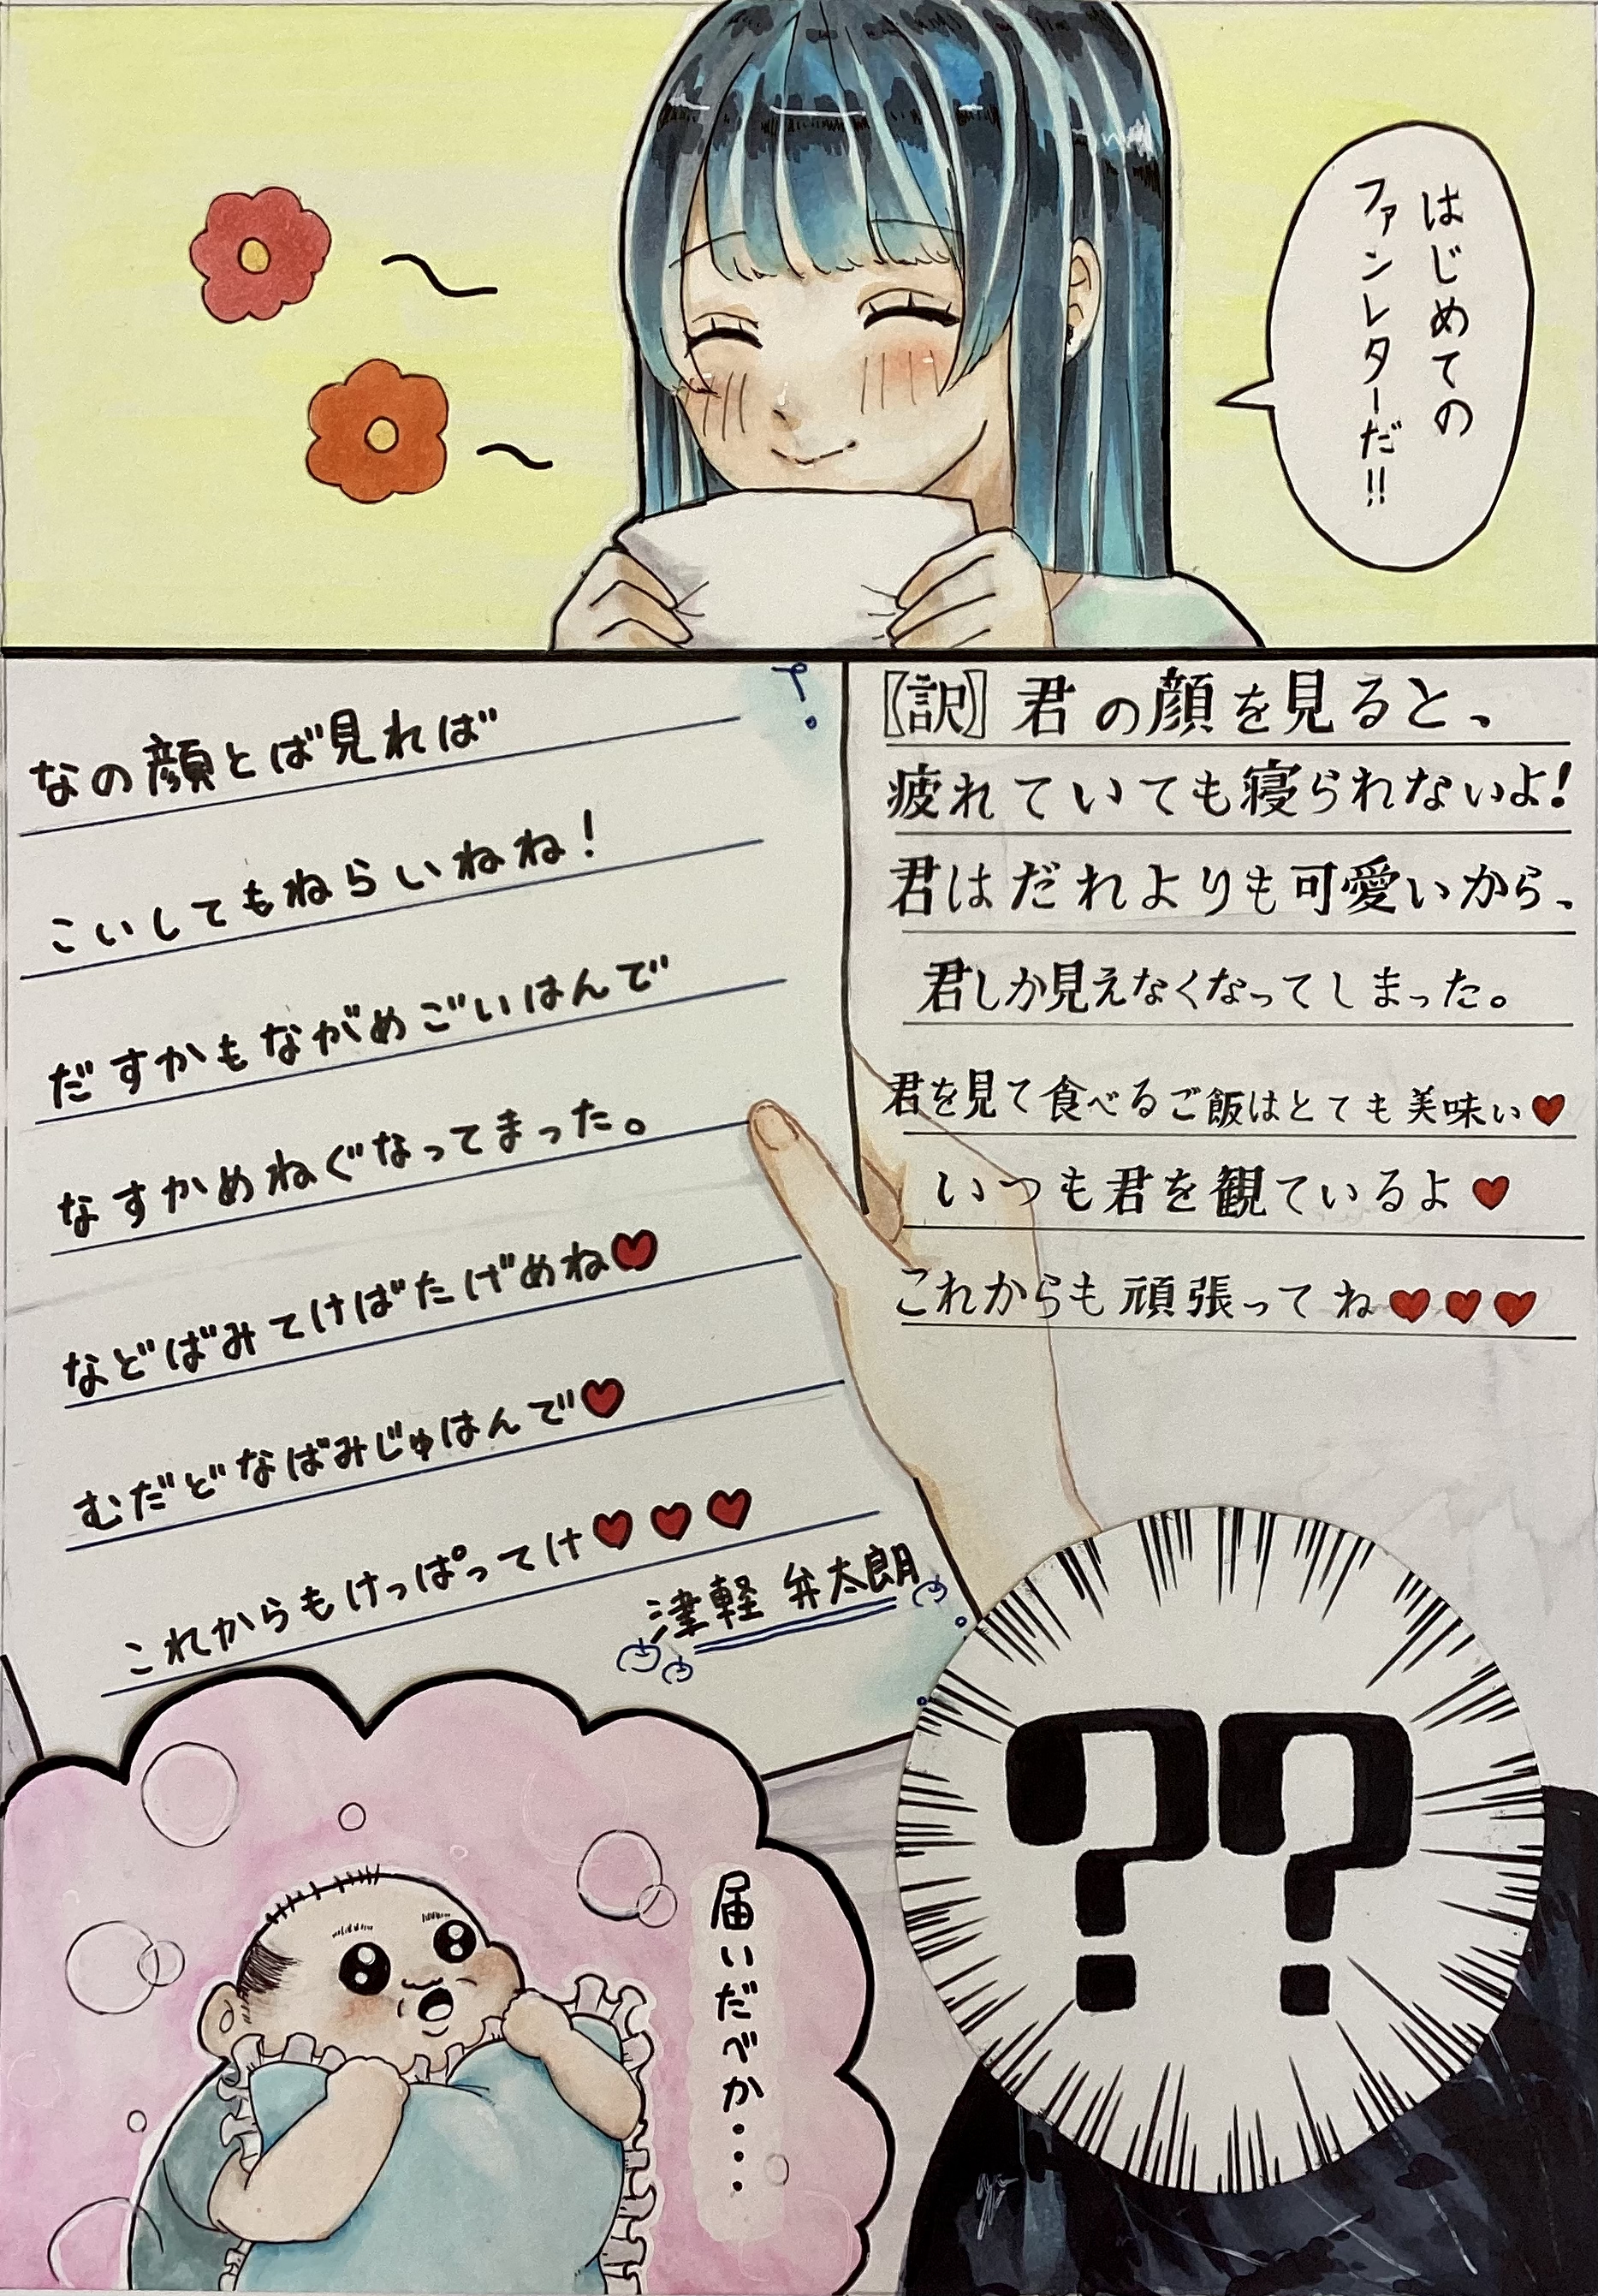 はじめての
ファンレターだ!!
なの顔とば見れば
こいしてもねらいねね!
だすかもながめごいはんで
なすかめねぐなってまった。
などばみてけばたげめね♥
むだどなばみじゅはんで♥
これからもけっぱってけ♥♥♥
津軽 弁太朗
【訳】君の顔を見ると、
疲れていても寝られないよ!
君はだれよりも可愛いから、
君しか見えなくなってしまった。
君を見て食べるご飯はとても美味い♥
いつも君を観ているよ♥
これからも頑張ってね♥♥♥
??
届いだべか・・・